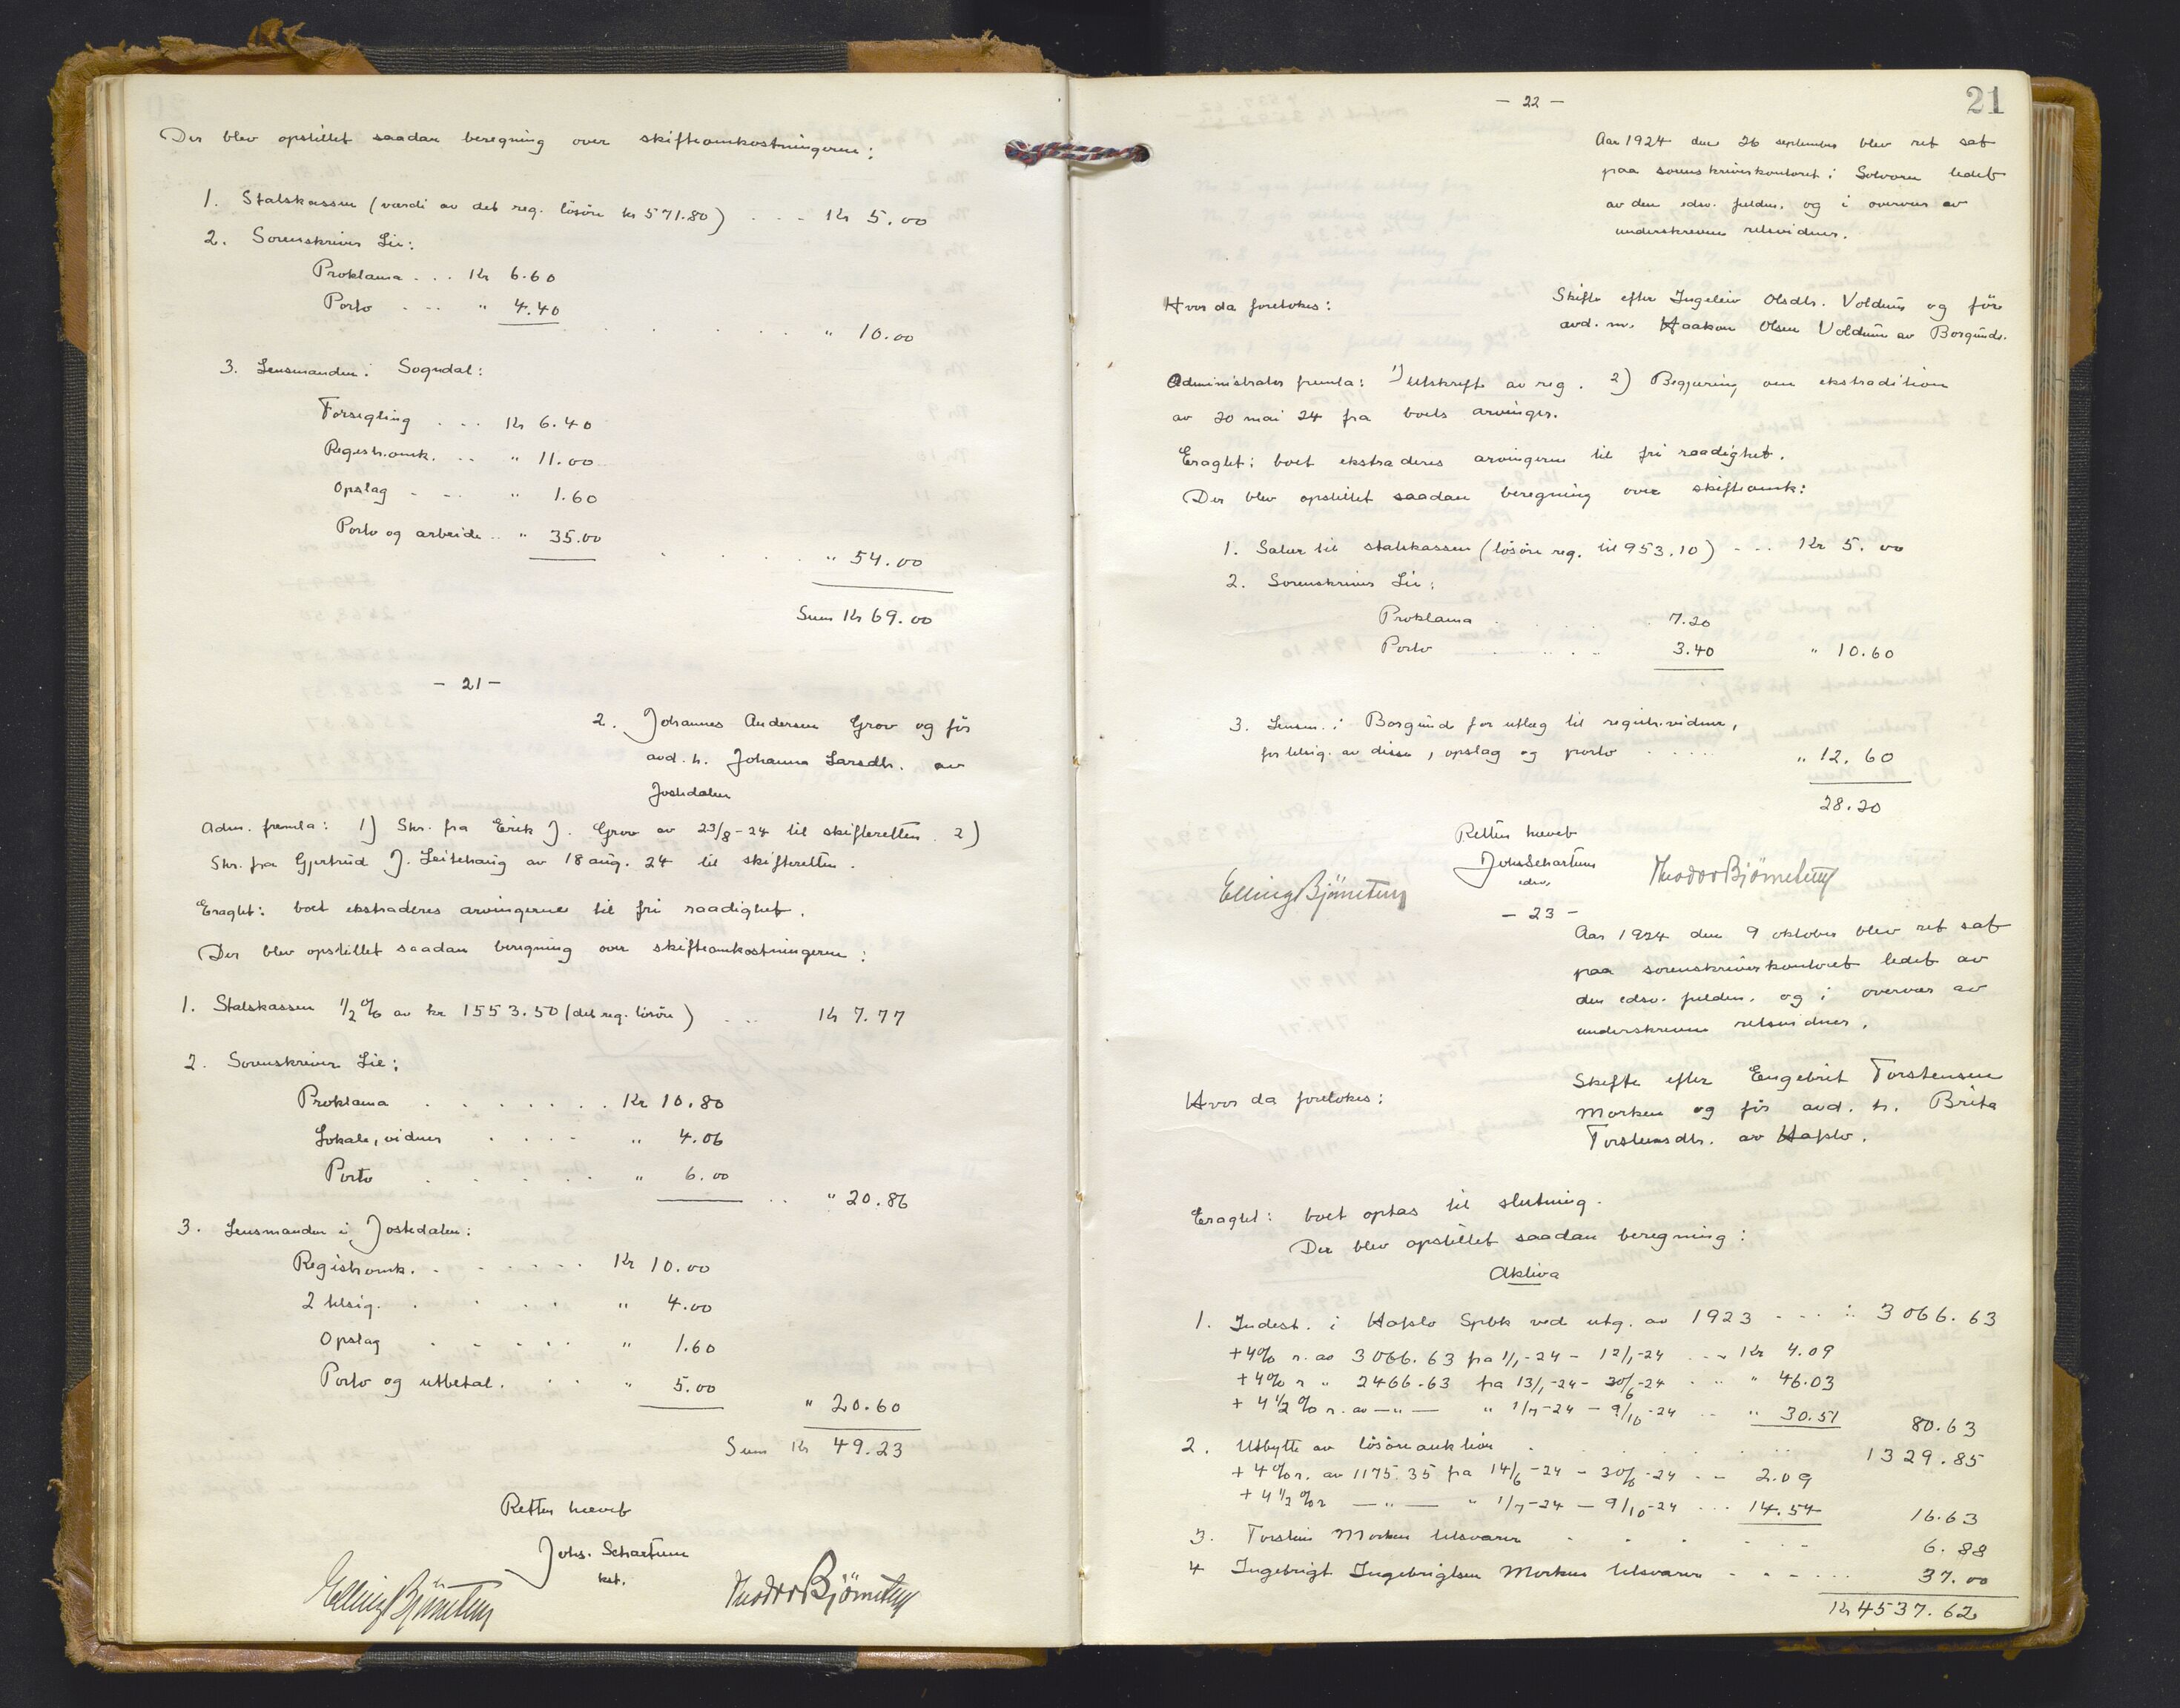 Der blev opstillet saadan beregning over skifteomkostningerne:
1. Statskassen (værdi av det reg. lösöre kr 571.80) . . . Kr 5.00
2. Sorenskriver Lie:
Proklama . . . Kr 6.60
Porto . . . " 4.40
" 10.00
3. Lensmanden i Sogndal:
Forsegling . . . Kr 6.40
Registr.omk. . . " 11.00
Opslag . . . " 1.60
Porto og arbeide . . " 35.00
" 54.00
Sum Kr 69.00
- 21 -
2. Johannes Andersen Grov og før
avd. h. Johanna Larsdtr. av
Jostedalen
Adm. fremla: 1) Skr. fra Erik J. Grov av 23/8-24 til skifteretten. 2)
Skr. fra Gjertrud J. Leitehaug av 18 aug. 24 til skifteretten.
Eragtet: boet ekstraderes arvingerne til fri raadighet.
Der blev opstillet saadan beregning over skifteomkostningerne:
1. Statskassen 1/2 % av kr 1553.50 (det reg. lösöre) . . . Kr 7.77
2. Sorenskriver Lie:
Proklama . . . . . . . Kr 10.80
Lokale, vidner . . . . " 4.06
Porto . . . . . . " 6.00
. . " 20.86
3. Lensmanden i Jostedalen:
Registr.omk. . . . . . . Kr 10.00
2 tilsig. . . . . " 4.00
Opslag . . . . . . " 1.60
Porto og utbetal. . . . " 5.00
" 20.60
Sum Kr 49.23
Retten hævet
Johs. Schartum
kst.
Elling Bjørnetun
Theodor Bjørnetun
21
- 22 -
Aar 1924 den 26 september blev ret sat
paa sorenskriverkontoret i Solvorn ledet
av den edsv. fuldm. og i overvær av
underskrevne retsvidner.
Hvor da foretokes:
Skifte efter Ingeleiv Olsdtr. Voldum og før
avd. m. Haakon Olsen Voldum av Borgund.
Administrator fremla: 1) Utskrift av reg. 2) Begjæring om ekstradition
av 20 mai 24 fra boets arvinger.
Eragtet: boet ekstraderes arvingerne til fri raadighet.
Der blev opstillet saadan beregning over skifteomk:
1. Salær til statskassen (lösöre reg. til 953.10) . . . Kr 5.00
2. Sorenskriver Lie:
Proklama . . . . . 7.20
Porto . . . . . 3.40 " 10.60
3. Lensm. i Borgund for utlæg til registr.vidner,
for tilsig. av disse, opslag og porto . . . . . " 12.60
28.20
Retten hævet
Johs Schartum
edsv.
Elling Bjørnetun
Theodor Bjørnetun
- 23 -
Aar 1924 den 9 oktober blev ret sat
paa sorenskriverkontoret ledet av
den edsv. fuldm. og i overvær av
underskrevne retsvidner.
Hvor da foretokes:
Skifte efter Engebrit Torstensen
Morken og før avd. h. Brita
Torstensdtr. av Hafslo.
Eragtet: boet optas til slutning.
Der blev opstillet saadan beregning:
Aktiva
1. Indest. i Hafslo Spbk ved utg. av 1923 . . . . 3066.63
+ 4% r. av 3066.63 fra 1/1-24 - 12/1-24 . . . Kr 4.09
+ 4% r " 2466.63 fra 13/1-24 - 30/6-24 . . " 46.03
+ 4 1/2 % r. av - " - " 1/7-24 - 9/10-24 . . " 30.51 80.63
2. Utbytte av lösöreauktion . . . . . . . 1329.85
+ 4% r. av 1175.35 fra 14/6-24 - 30/6-24 . . 2.09
+ 4 1/2 % r - " - " 1/7-24 - 9/10-24 . . . 14.54 16.63
3. Torstein Morken tilsvarer . . . . . . 6.88
4 Ingebrigt Ingebrigtsen Morken tilsvarer . . . . . 37.00
Kr 4537.62